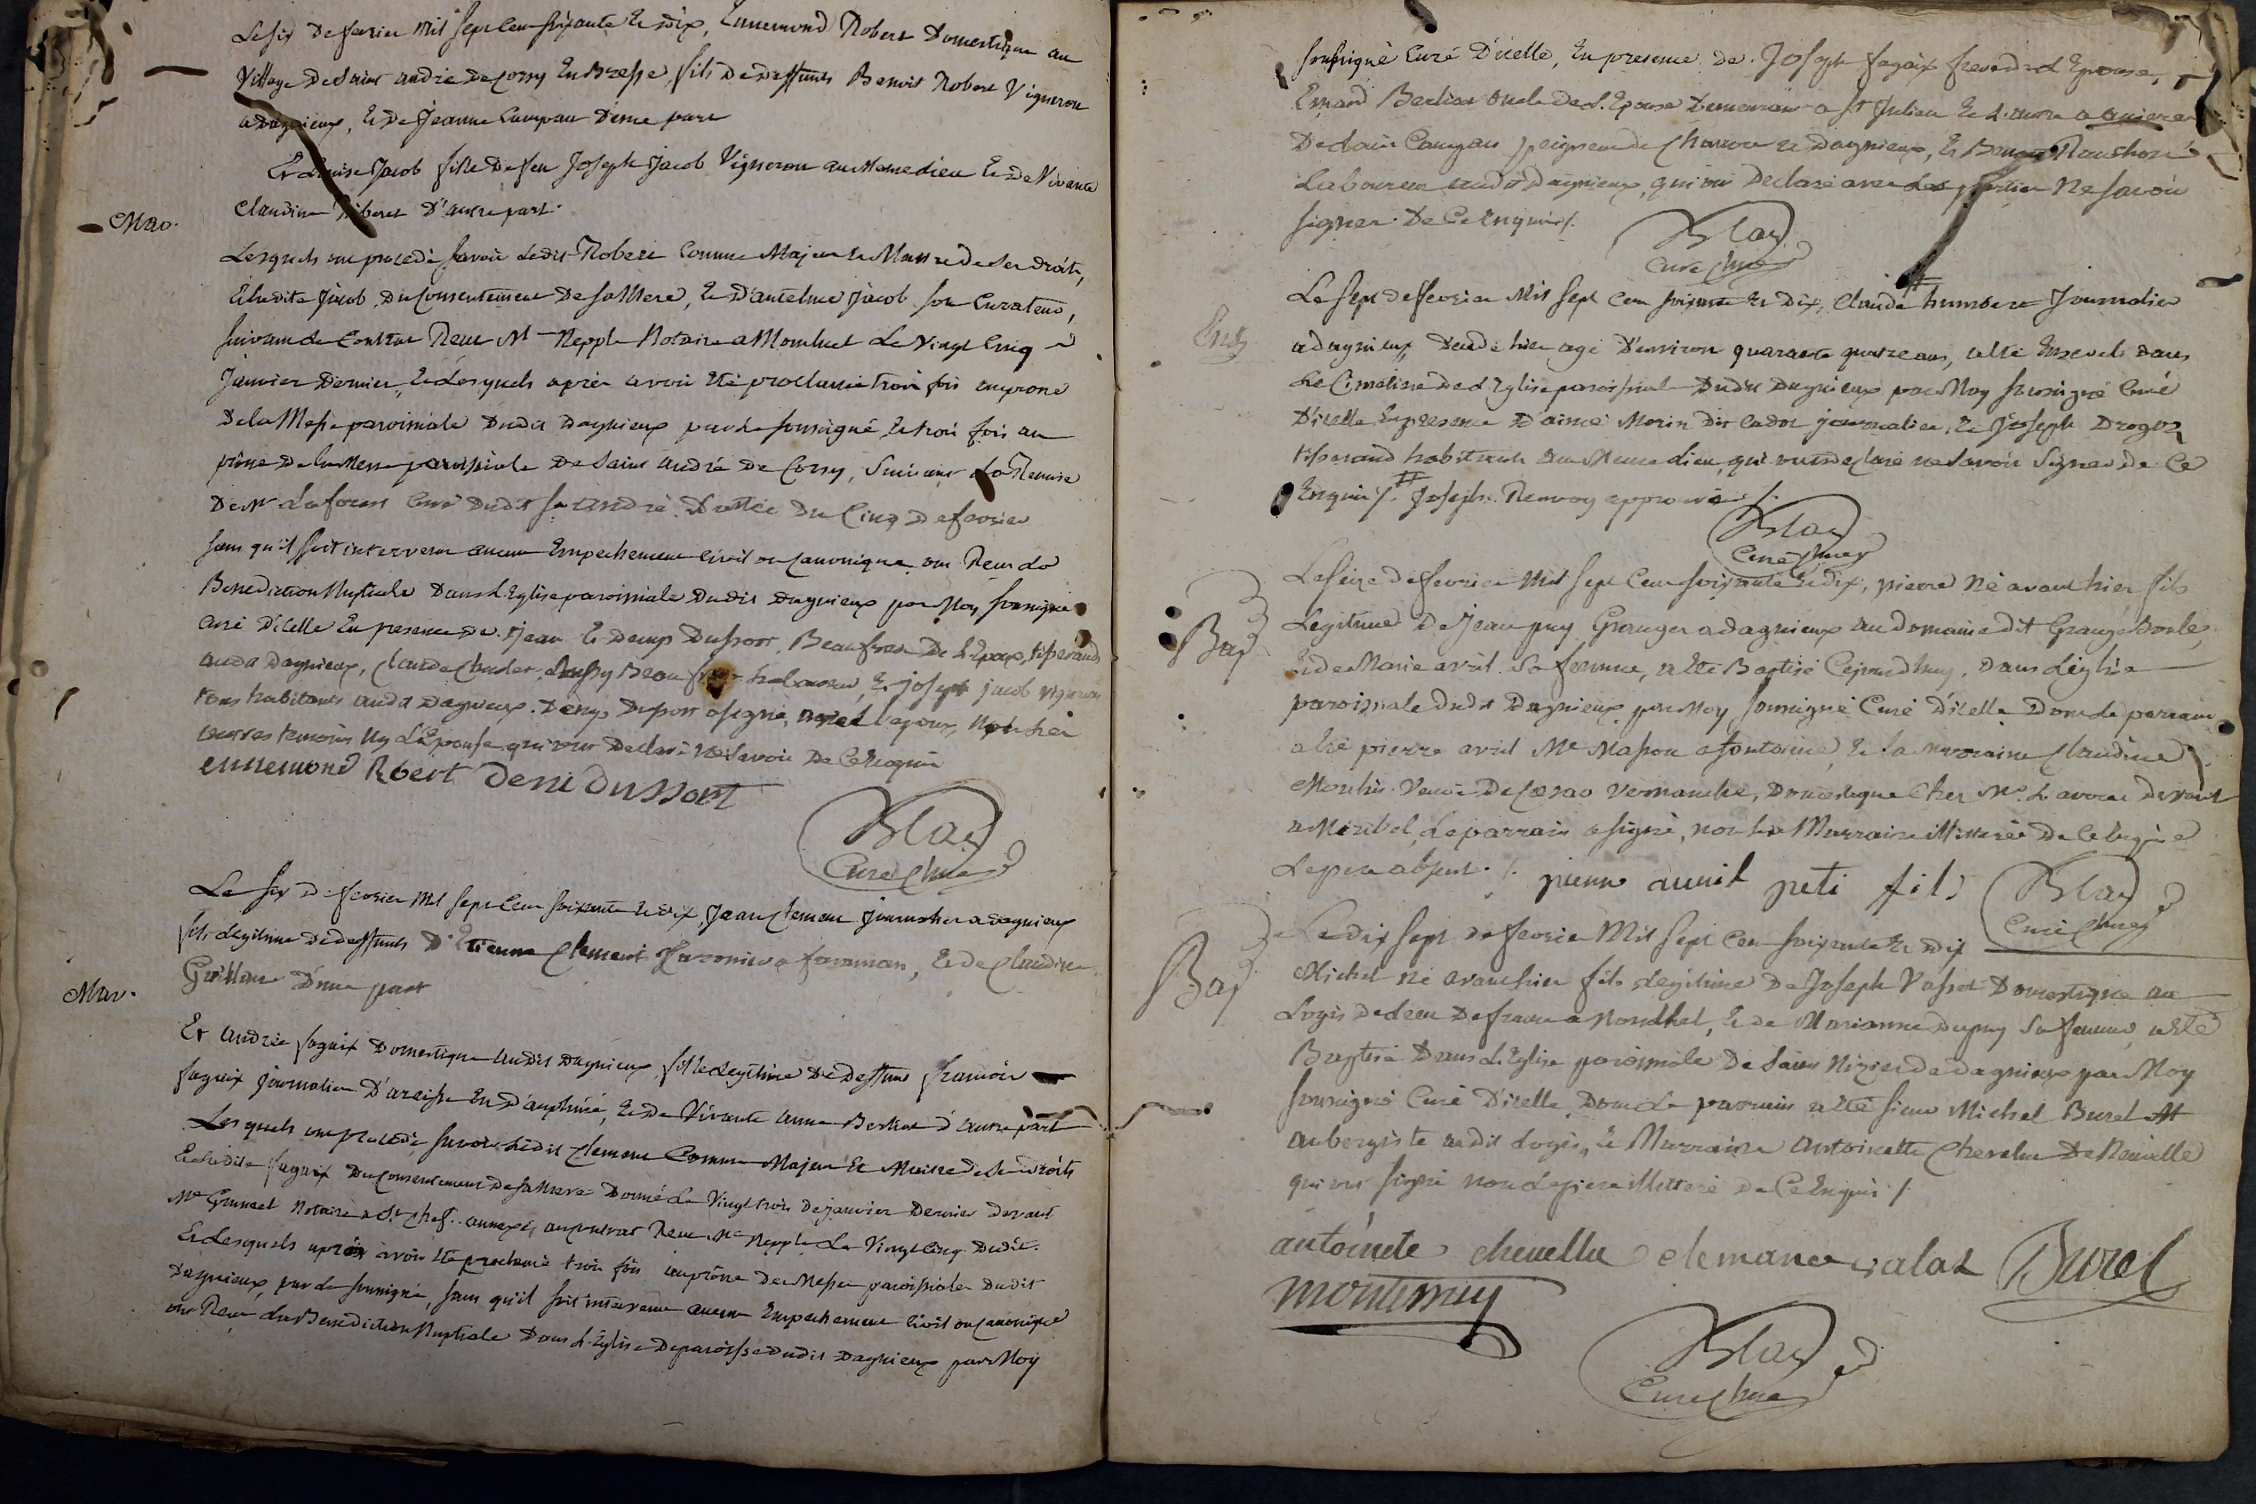 Le six De fevrier Mil sept Cens soixante Et dix, Ennemond Robert Domestique au
Village De Saint andré de Corsy En Bresse, fils De deffunts Benoit Robert Vigneron
a dagnieux, Et De Jeanne Campan D'une part
Et Louise Jacob fille De feu Joseph Jacob Vigneron au Mome dieu Et De Vivante
Claudine Riboret D'autre part.
Mar.
Lesquels ont procedé savoir Ledit Robert Comme Majeur Et Maitre de Ses droits,
Et Ladite Jacob Du Consentement De Sa Mere, Et D'antelme Jacob son Curateur,
suivant Le Contrat Reçu Mᵉ Nepple Notaire a Montluel Le Vingt Cinq
Janvier Dernier, Et Lesquels après avoir Eté proclamé trois fois au prone
De la Messe paroissiale Dudit Dagnieux par Le soussigné, Et trois fois au
prône De la Messe paroissiale De Saint André De Corsy, Suivant La Remise
De Mʳ Laforest Curé Dudit St André. Dattée Du Cinq De fevrier
sans qu'il soit intervenu aucun Empechement Civil ou Canonique ont Reçu La
Benediction Nuptiale Dans L'Eglise paroissiale Dudit Dagnieux par Moy soussigné
Curé D'icelle En presence De Jean Et Denys Dussort, Beaufrere De L'Epoux, tisserands
audit Dagnieux, Claude Beau frere Et Joseph jacob vigneron
tous habitants audit Dagnieux. Denys Dussort a signé, avec l'epoux, Non les
autres temoins Ny L'Epouse qui ont Declaré Ne Savoir De Ce Enquis
ennemond Robert Deni Dussort
Blas
Curé
Le six De fevrier Mil sept Cens soixante Et dix, Jean Clement Journalier a dagnieux
fils Legitime De deffunts Etienne Clement a faraman, Et de Claudine
Guillon D'une part
Mar.
Et andrée fagaix Domestique audit Dagnieux, fille Legitime De Deffunt françois
fagaix journalier D'areisse En D'auphiné, Et De Vivante anne Berliat D'autre part
Lesquels ont procedé savoir Ledit Clement Comme Majeur Et Maitre de Ses droits
Et Ladite fagaix Du Consentement De Sa Mere Donné Le Vingt trois De janvier Dernier Devant
Mᵉ Notaire a St Chef. annexé au Contrat Reçu Mᵉ Nepple Le Vingt Cinq Dudit.
Et Lesquels après avoir Eté proclamé trois fois au prône De La Messe paroissiale Dudit
Dagnieux, par Le soussigné, sans qu'il soit intervenu aucun Empechement Civil ou Canonique
ont Reçu La Benediction Nuptiale Dans L'Eglise De paroisse Dudit Dagnieux par Moy
soussigné Curé D'icelle, En presence De Joseph fagaix frere De L'Epouse,
Berliat oncle De L'Epouse Demeurant a St Julien Et L'autre a
De Campan peigneur de Chanvre a Dagnieux, Et
Laboureur audit Dagnieux, qui ont Declaré avec Les parties Ne savoir
signer De Ce Enquis /.
Blas
Curé
Ent.
Le sept De fevrier Mil sept Cens soixante Et Dix, Claude # humbert Journalier
a dagnieux, Decedé hier agé D'environ quarante quatre ans, a Eté Enseveli dans
Le Cimetiere de L'Eglise paroissiale Dudit Dagnieux par Moy soussigné Curé
D'icelle En presence D'aimé Morin Dit Cadot journalier, Et Joseph Drogoz
tisserand habitants au Mome dieu, qui ont declaré ne savoir Signer De Ce
Enquis /. # Joseph. Renvoy approuvé /.
Blas
Curé
Bap
Le seize De fevrier Mil sept Cens soixante Et dix, pierre Né avant hier fils
Legitime De Jean puy Granger a dagnieux au Domaine dit
Et De Marie avril sa femme, a Eté Baptisé Cejourd'huy, Dans L'eglise
paroissiale Dudit Dagnieux par Moy soussigné Curé D'icelle Dont Le parrain
a Eté pierre avril Mᵉ Masson a fontaine, Et la marraine Claudine
Moulin Veuve De Domestique Chez Mᵉ
a Miribel, Le parrain a signé, non La Marraine illitterée De Ce Enquise
Le pere absent. /. pierre avril peti fils Blas
Curé
Bap
Le Dix sept De fevrier Mil sept Cens soixante Et dix
Michel né avant hier fils Legitime De Joseph Vassot Domestique au
Logis de Lecu De france a Montluel, Et De Marianne Dupuy Sa femme, a Eté
Baptisé Dans L'Eglise paroissiale De Saint Nizier De dagnieux par Moy
soussigné Curé D'icelle Dont Le parrain a Eté sieur Michel Burel
aubergiste audit Logis, Et Marraine antoinette Chevelu De Neuville
qui ont signé non Le pere illitteré De Ce Enquis /.
antoinete chevellu clemance valat Burel
montemuy
Blas
Curé